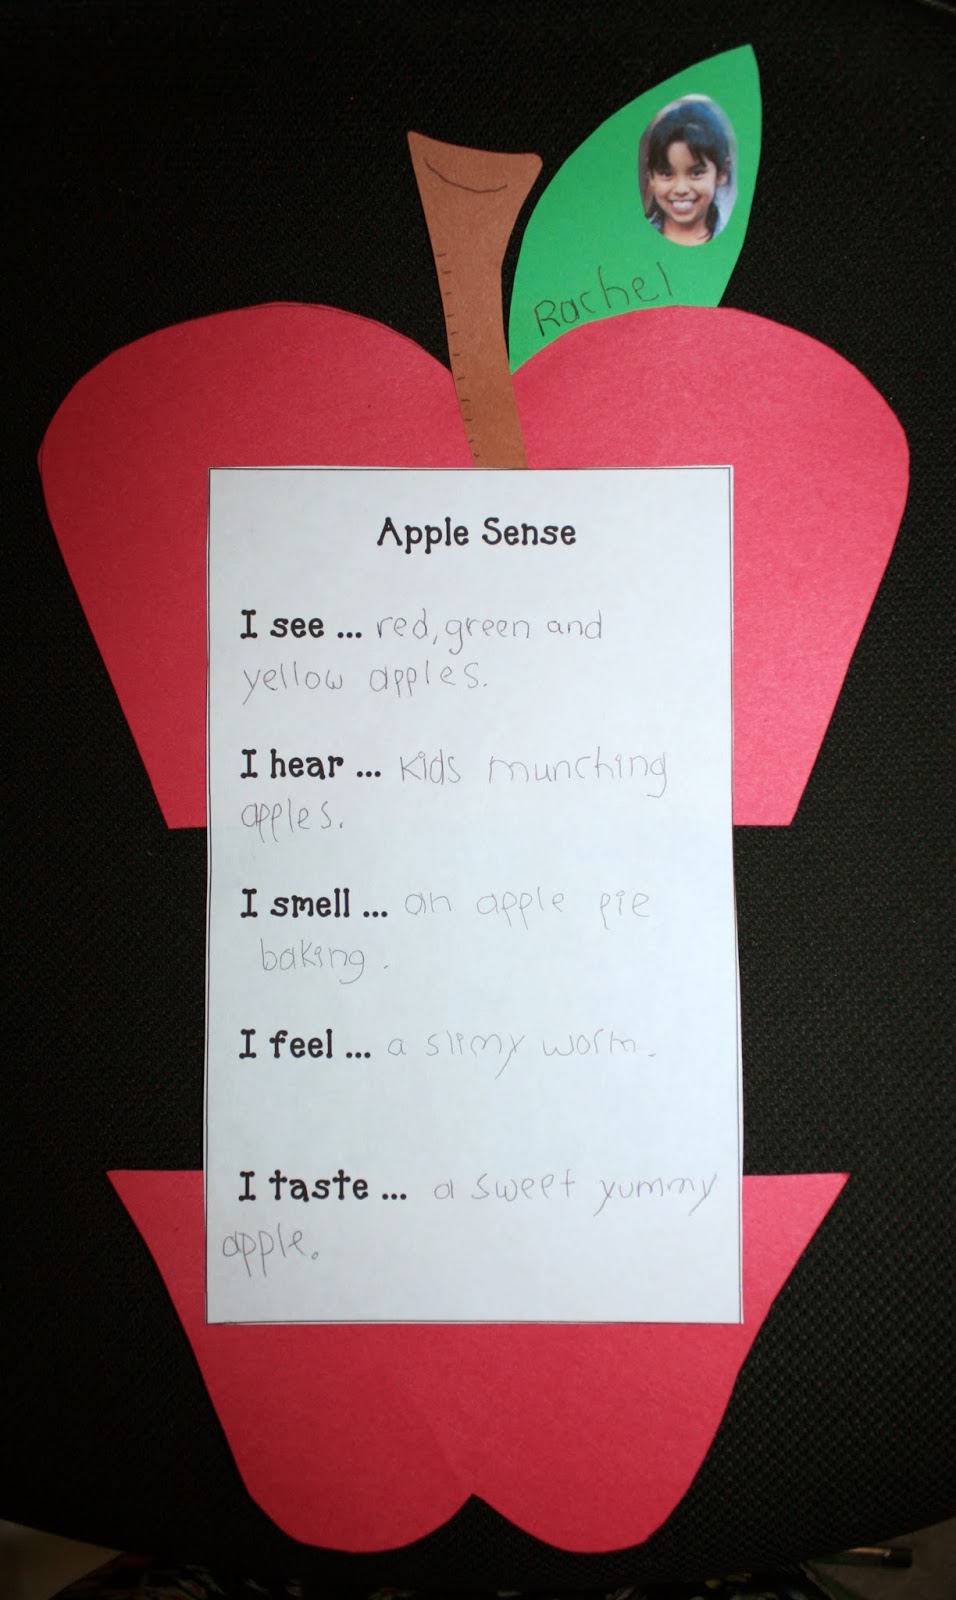 Rachel
Apple Sense
I see ... red, green and
yellow apples.
I hear ... kids munching
apples.
I smell ... an apple pie
baking.
I feel ... a slimy worm.
I taste ... a sweet yummy
apple.